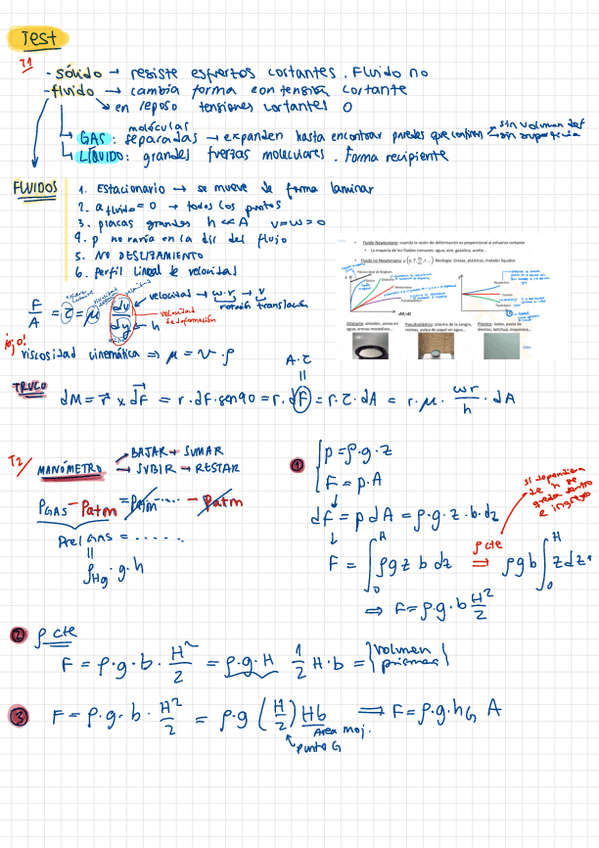 Test
T1
- sólido → resiste esfuertos cortantes. Fluido no
- fluido → cambia forma con tensión cortante
→ en reposo tensiones cortantes 0
moléculas
GAS: separadas → expanden hasta encontrar paredes que
sin volumen def
sin superficie
LÍQUIDO: grandes fuerzas moleculares. Forma recipiente
FLUIDOS
1. Estacionario → se mueve de forma laminar
2. a fluido = 0 → todos los puntos
3. placas grandes h << A v=w>0
4. p no varía en la dir del flujo
5. NO DESLIZAMIENTO
6. Perfil Lineal de velocidad
• Fluido Newtoniano: cuando la razón de deformación es proporcional al esfuerzo cortante
• La mayoría de los fluidos comunes: agua, aire, gasolina, aceite...
Reología: Grasas, plásticos, metales líquidos
Dilatante: almidón, arena en agua, arenas movedizas...
Pseudoplástico: plasma de la sangre, resinas, pulpa de papel en agua...
Plástico: lodos, pasta de dientes, ketchup, mayonesa...
F/A = τ = μ dv/dy
velocidad → w·r → v
rotación translación
velocidad de deformación
h
¡ojo!
viscosidad cinemática ⇒ μ = ν · ρ
A·τ
||
TRUCO
dM = r x dF = r·dF·sen90 = r·dF = r·τ·dA = r·μ· wr/h · dA
T2/
MANÓMETRO
BAJAR → SUMAR
SUBIR → RESTAR
PGAS - Patm = Patm ..... - Patm
Prel GAS = ......
||
ρHg · g · h
1
p = ρ·g·z
F = p·A
dF = p dA = ρ·g·z·b·dz
F = ∫₀ᴴ ρg z b dz ⇒ ρgb ∫₀ᴴ z dz
ρ cte
si dependiera de h se queda dentro e integro
⇒ F = ρ·g·b H²/2
2 ρ cte
F = ρ·g·b· H²/2 = ρ·g·H 1/2 H·b = {volumen prismas}
3 F = ρ·g·b· H²/2 = ρ·g (H/2) Hb ⇒ F = ρ·g·hG A
Area moj.
punto G